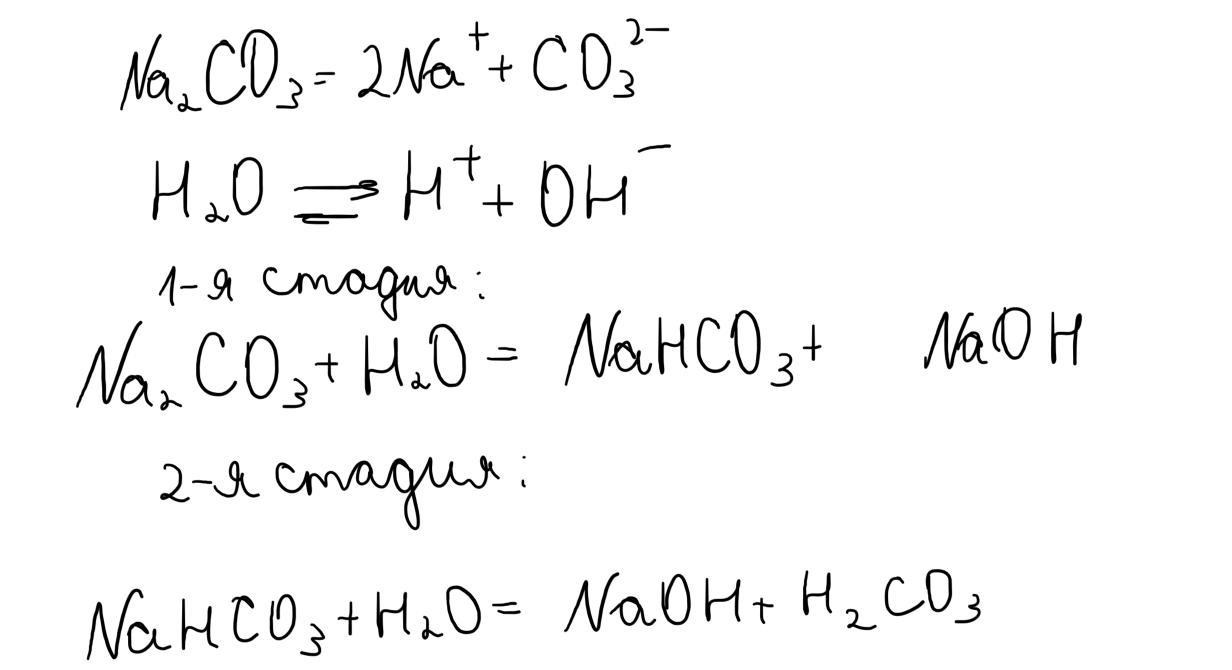 Na₂CO₃ = 2Na⁺ + CO₃²⁻
H₂O ⇌ H⁺ + OH⁻
1-я стадия:
Na₂CO₃ + H₂O = NaHCO₃ + NaOH
2-я стадия:
NaHCO₃ + H₂O = NaOH + H₂CO₃